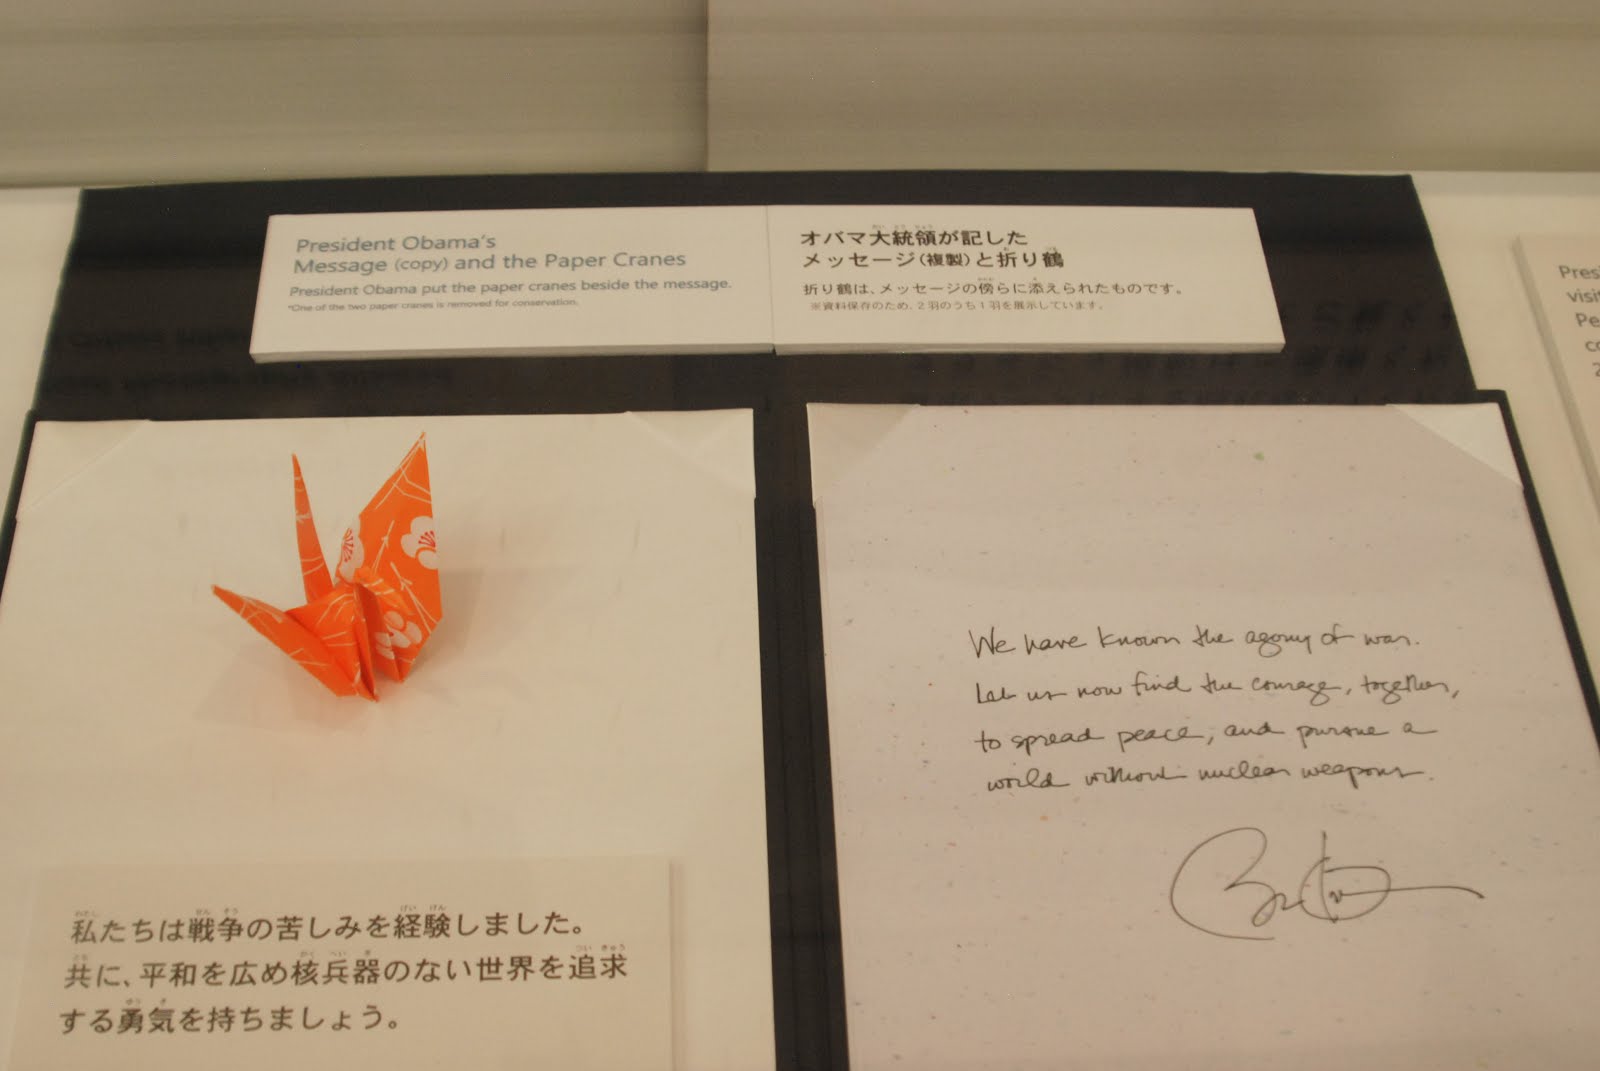 President Obama's
Message (copy) and the Paper Cranes
President Obama put the paper cranes beside the message.
*One of the two paper cranes is removed for conservation.
オバマ大統領が記した
メッセージ(複製)と折り鶴
折り鶴は、メッセージの傍らに添えられたものです。
※資料保存のため、2羽のうち1羽を展示しています。
We have known the agony of war.
Let us now find the courage, together,
to spread peace, and pursue a
world without nuclear weapons.
私たちは戦争の苦しみを経験しました。
共に、平和を広め核兵器のない世界を追求
する勇気を持ちましょう。
Pres
visi
Pe
co
2